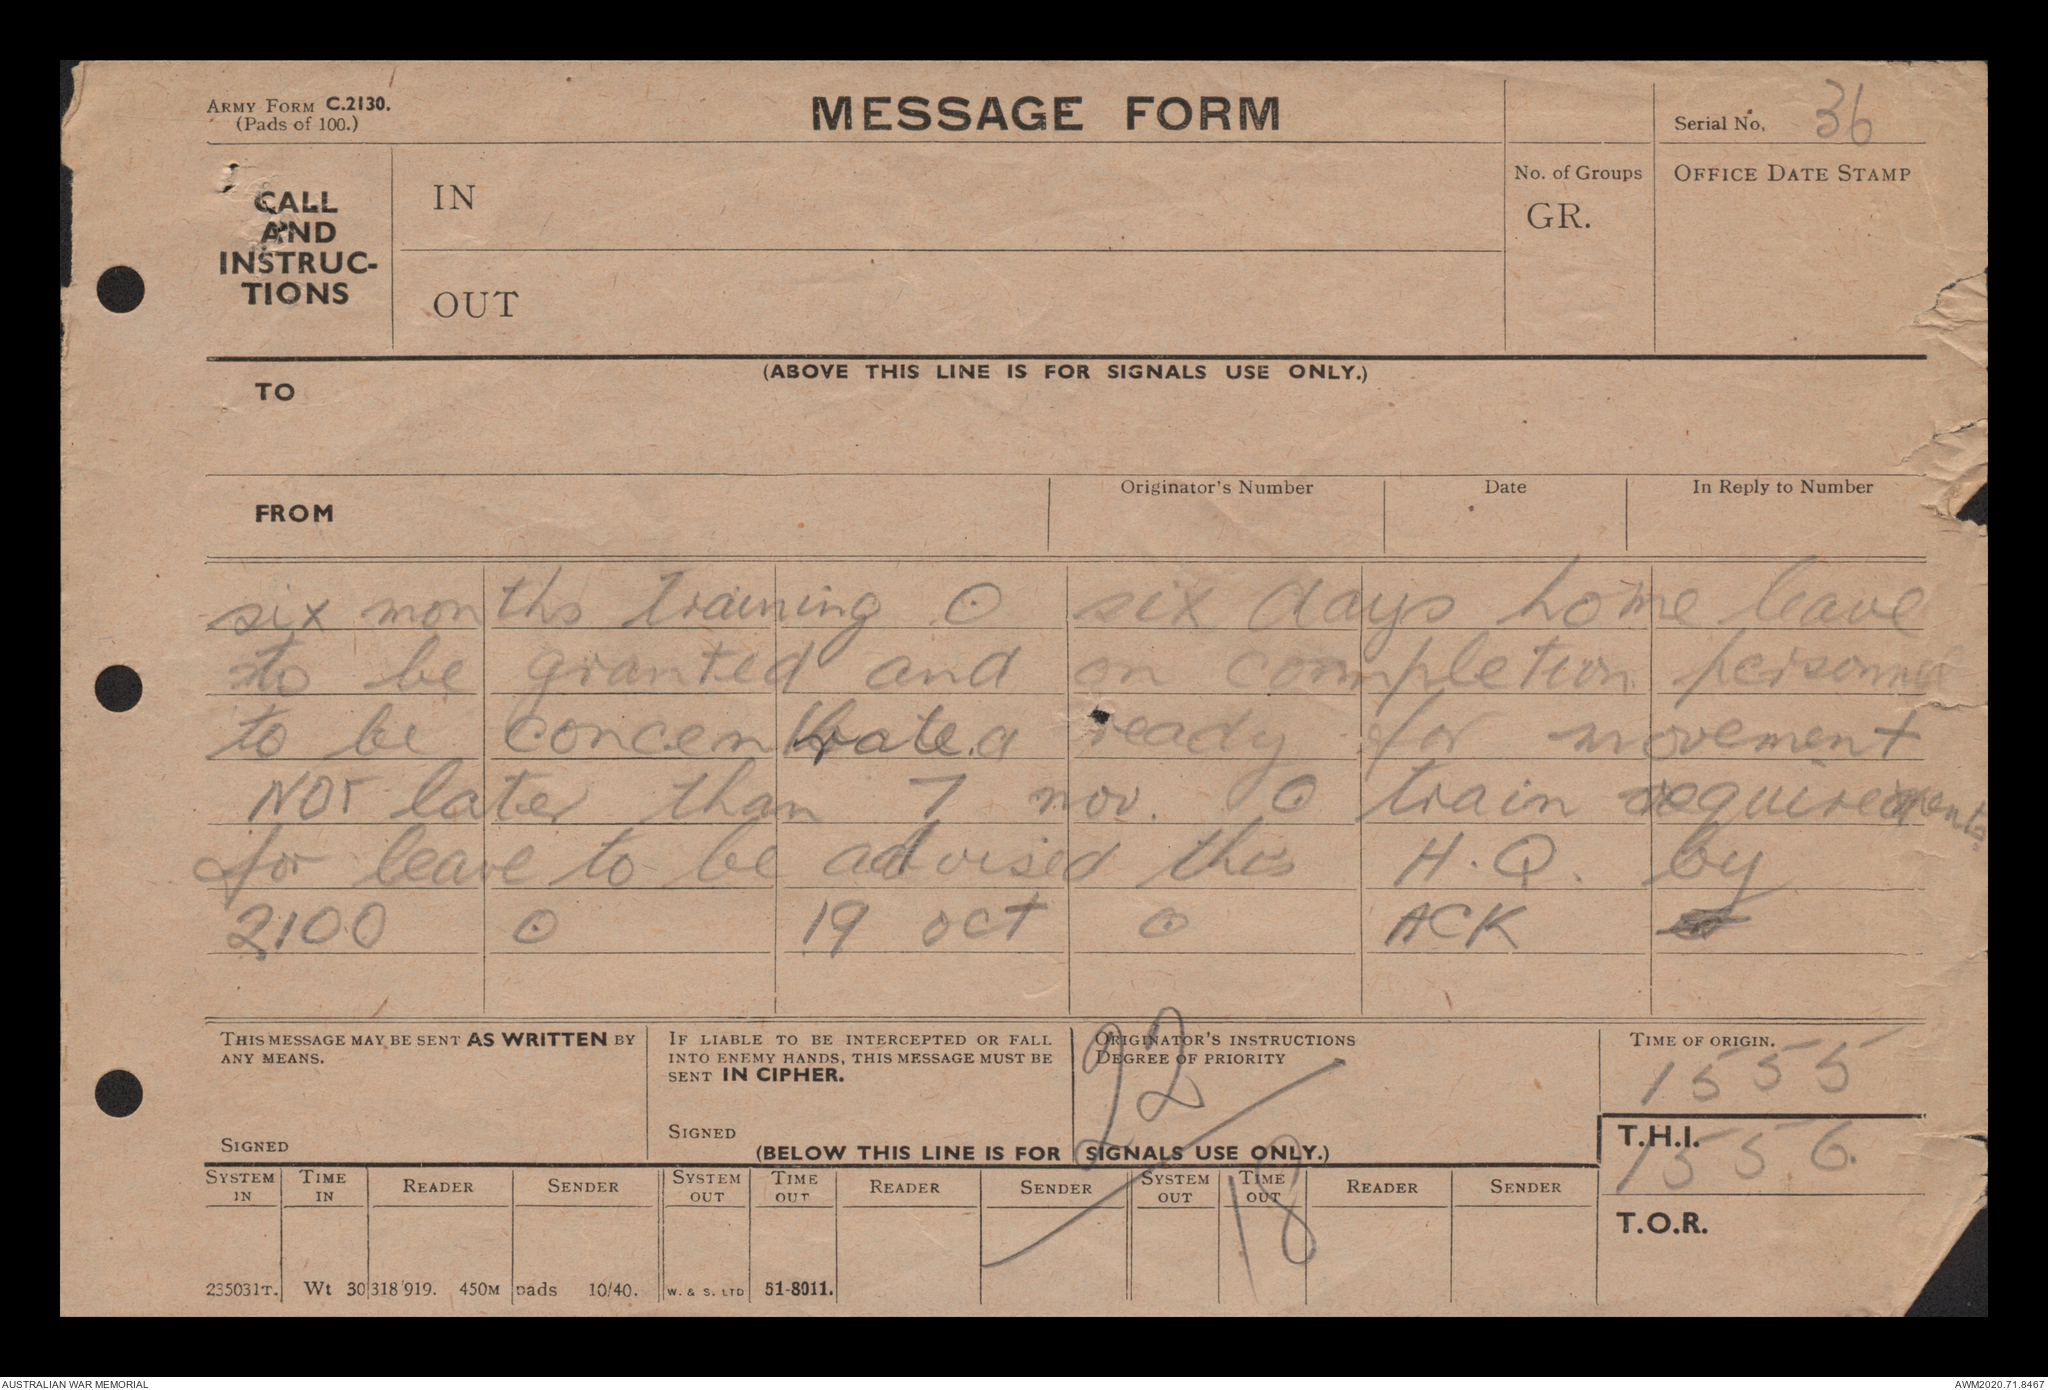 ARMY FORM C.2130.
(Pads of 100.)
MESSAGE FORM
Serial No. 36
CALL
AND
INSTRUC-
TIONS
IN
OUT
No. of Groups
GR.
OFFICE DATE STAMP
(ABOVE THIS LINE IS FOR SIGNALS USE ONLY.)
TO
FROM
Originator's Number
Date
In Reply to Number
six months training ⊙ six days home leave
to be granted and on completion personnel
to be concentrated ready for movement
NOT later than 7 nov. ⊙ train requirements
for leave to be advised this H.Q. by
2100 ⊙ 19 oct ⊙ ACK
THIS MESSAGE MAY BE SENT AS WRITTEN BY
ANY MEANS.
SIGNED
IF LIABLE TO BE INTERCEPTED OR FALL
INTO ENEMY HANDS, THIS MESSAGE MUST BE
SENT IN CIPHER.
SIGNED
ORIGINATOR'S INSTRUCTIONS
DEGREE OF PRIORITY
92/18
TIME OF ORIGIN.
1555
T.H.I.
1556.
T.O.R.
(BELOW THIS LINE IS FOR SIGNALS USE ONLY.)
SYSTEM IN TIME IN READER SENDER SYSTEM OUT TIME OUT READER SENDER SYSTEM OUT TIME OUT READER SENDER
235031T. Wt 30318/919. 450M pads 10/40. W. & S. LTD 51-8011.
AUSTRALIAN WAR MEMORIAL
AWM2020.71.8467